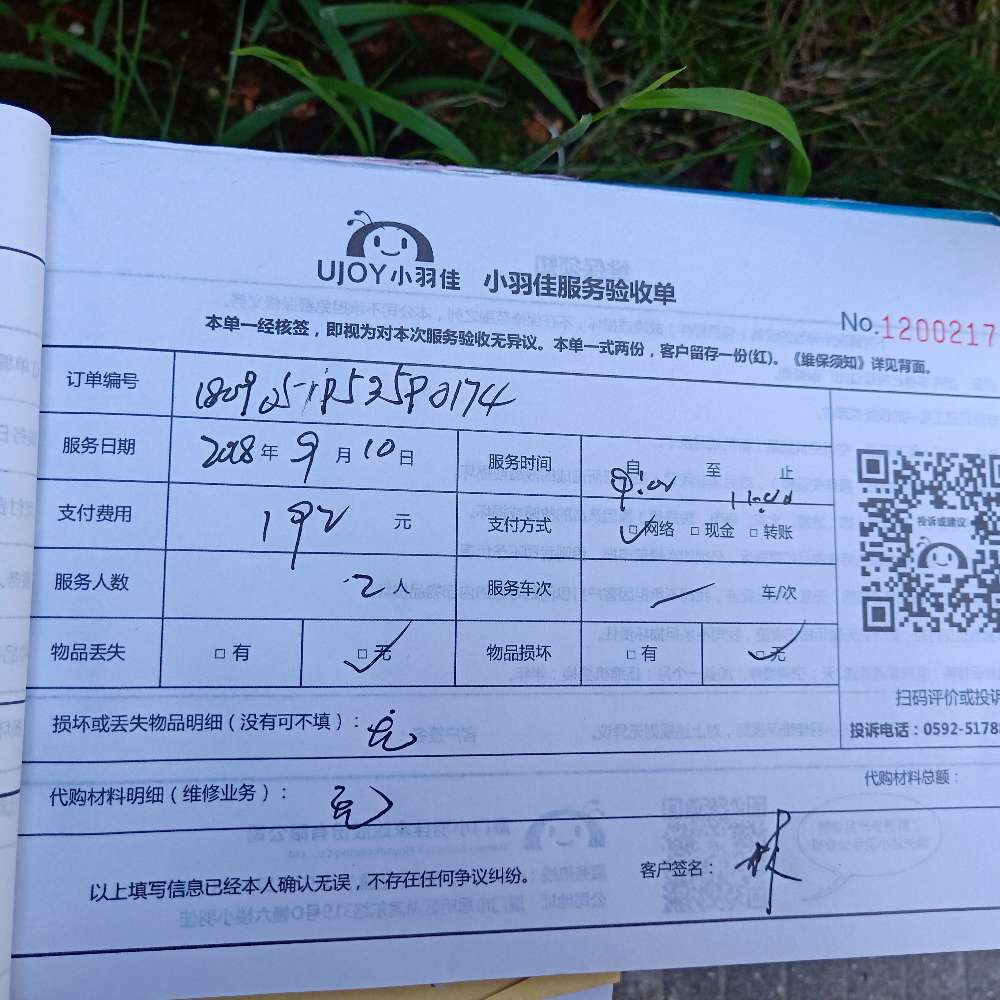 UJOY小羽佳 小羽佳服务验收单
No.1200217
本单一经核签，即视为对本次服务验收无异议。本单一式两份，客户留存一份(红)。《维保须知》详见背面。
订单编号
服务日期 2018年9月10日 服务时间 自 至 止
9:00 11:00
支付费用 192元 支付方式 □网络 □现金 □转账
投诉或建议
服务人数 2人 服务车次 车/次
物品丢失 □有 □无 物品损坏 □有 □无
扫码评价或投诉
损坏或丢失物品明细（没有可不填）：无
投诉电话：0592-5178
代购材料明细（维修业务）：无
代购材料总额：
以上填写信息已经本人确认无误，不存在任何争议纠纷。 客户签名：林